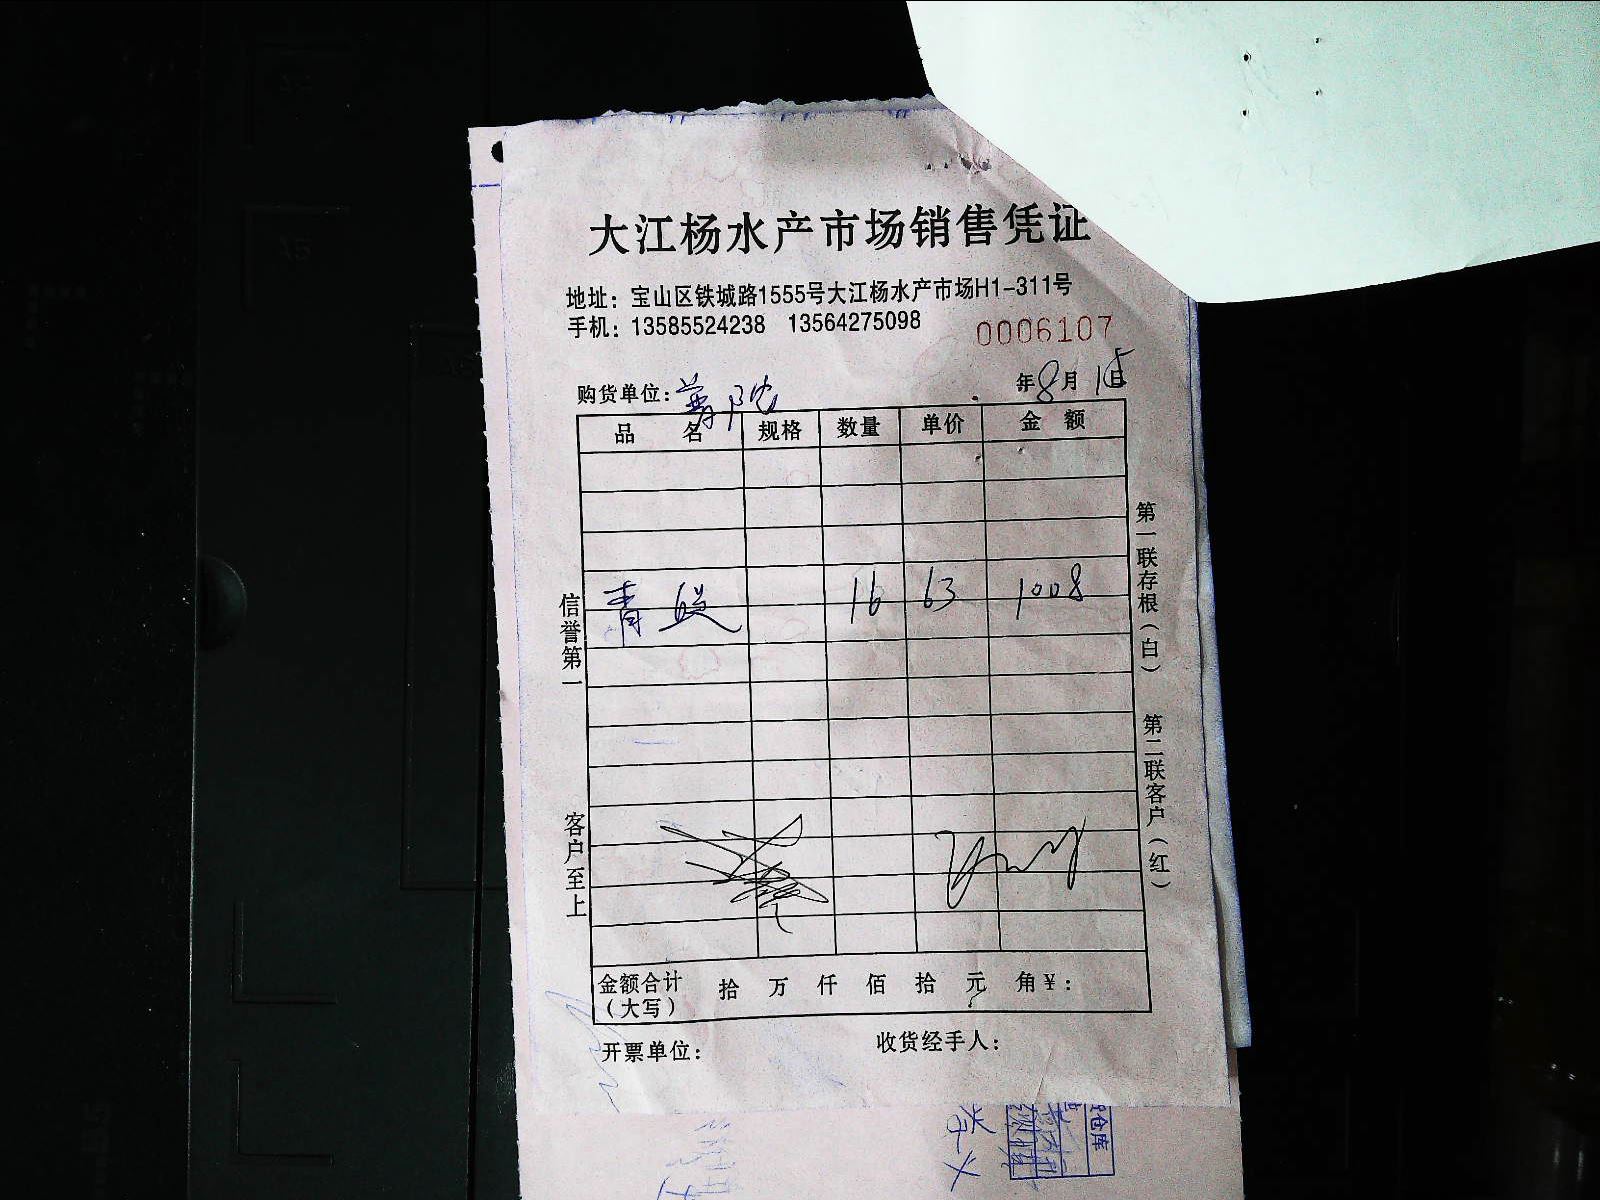 大江杨水产市场销售凭证
地址：宝山区铁城路1555号大江杨水产市场H1-311号
手机：13585524238 13564275098
0006107
购货单位： 年8月15日
品名 规格 数量 单价 金额
青 16 63 1008
信誉第一
客户至上
第一联存根（白）
第二联客户（红）
金额合计（大写） 拾 万 仟 佰 拾 元 角¥：
开票单位： 收货经手人：
仓库